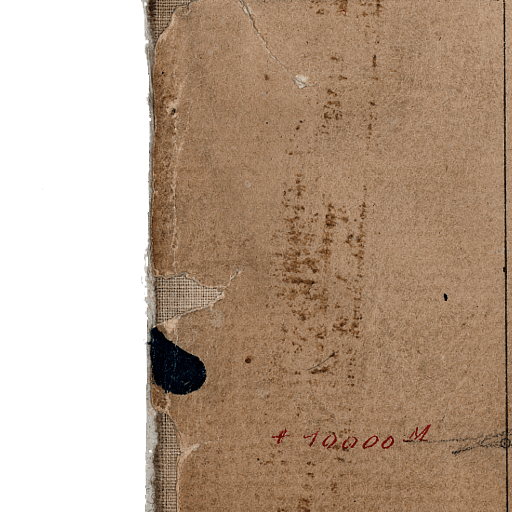 + 10000 M